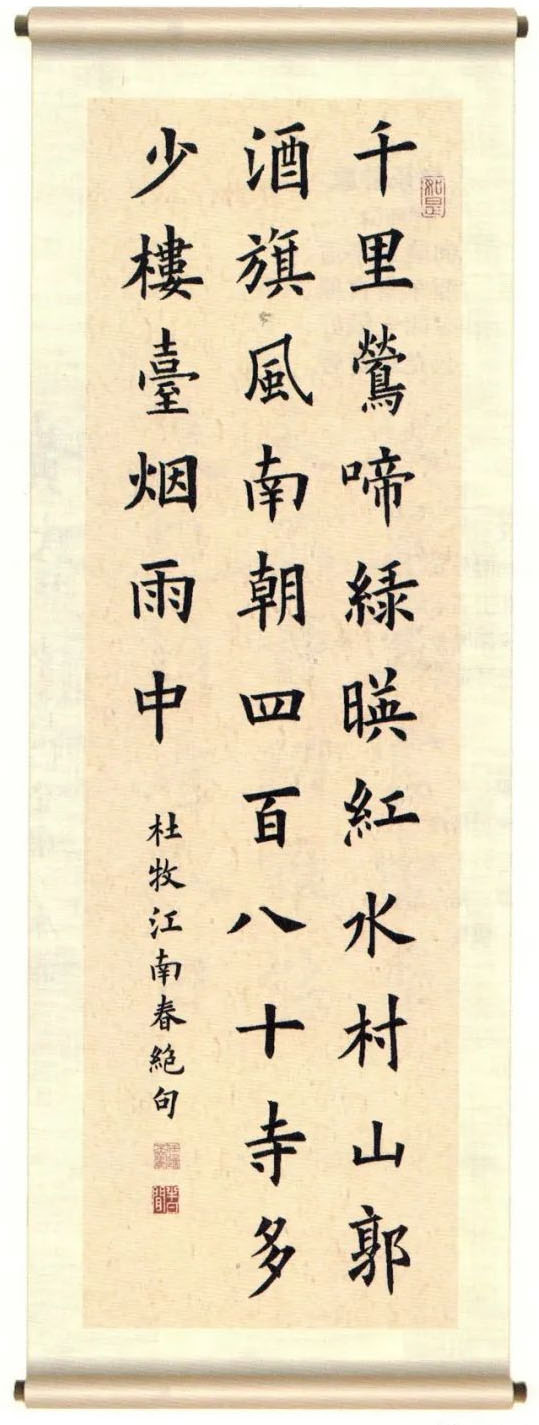 千里鶯啼緑暎紅水村山郭
酒旗風南朝四百八十寺多
少樓臺烟雨中
杜牧江南春絶句
如是